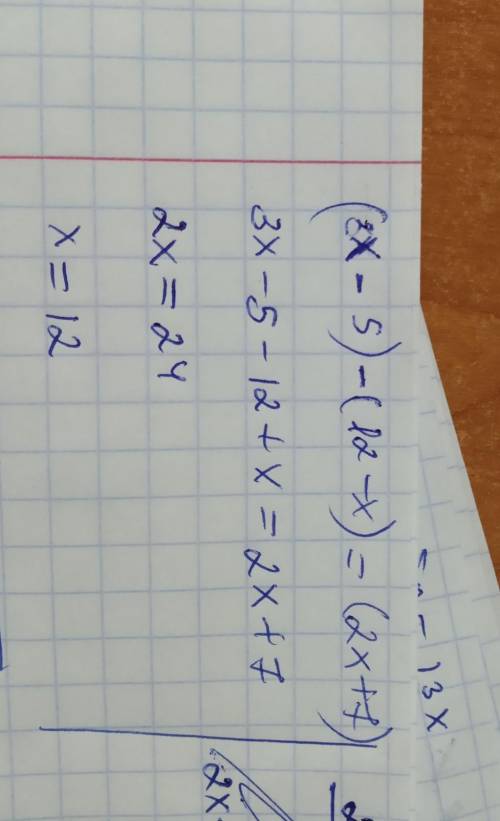 (3x - 5) - (12 - x) = (2x + 7)
3x - 5 - 12 + x = 2x + 7
2x = 24
x = 12
- 13x
2x